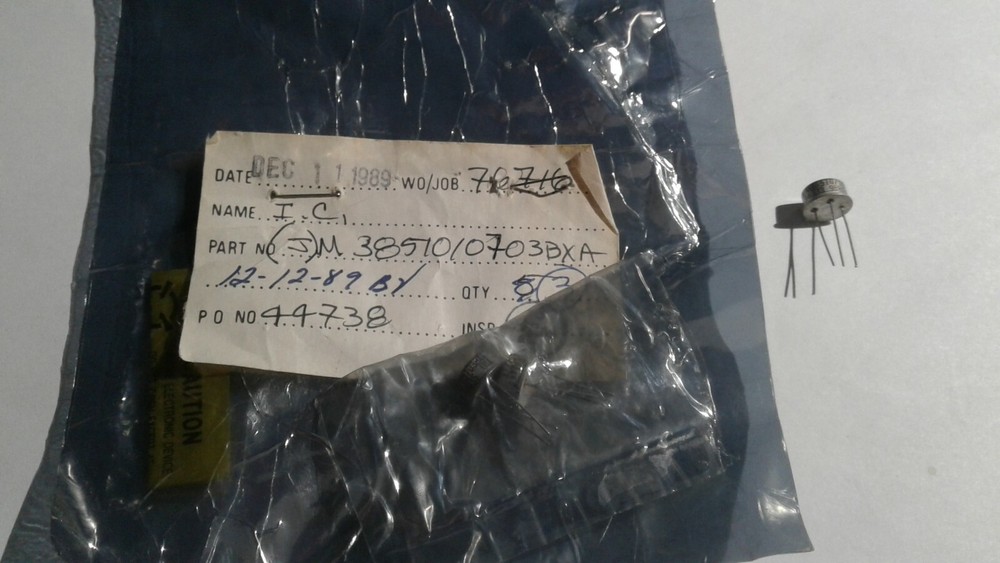 DATE DEC 11 1989 WO/JOB 76716
NAME I.C.
PART NO (J)M 38510/0703BXA
12-12-89 BY QTY 5
P O NO 44738 INSP
CAUTION
ELECTRONIC DEVICE